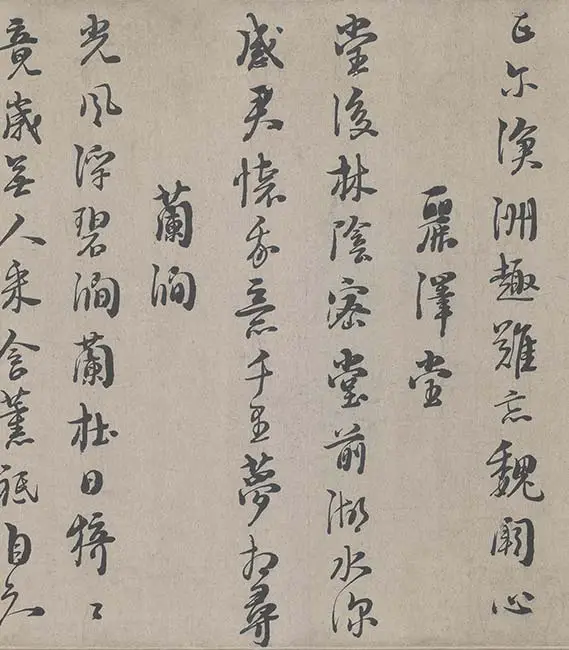 正尔滄洲趣難忘魏闕心
麗澤堂
堂後林陰密堂前湖水深
感君懷我意千里夢相尋
蘭澗
光風浮碧澗蘭杜日猗〻
竟歲無人采含薰祗自知